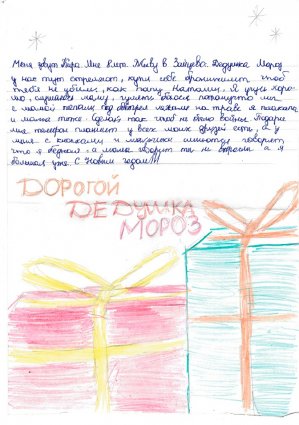 Меня зовут Лера Мне 8 лет. Живу в Зайцево. Дедушка Мороз
у нас тут стреляют, купи себе бронижилет чтоб
тебя не убили, как папу Наташи. Я учусь хоро-
шо, слушаюсь маму, гулять боюсь потомучто мы
с мамой попали под обстрел лежали на траве я плакала
и мама тоже. Сделай так чтоб не было войны Подари
мне телефон планшет у всех моих друзей есть, а у
меня с кнопками и мальчики смеются говорят
что я бедная а мама говорит ты не взрослая а я
большая уже С Новым годом!!!
ДОРОГОЙ
ДЕДУШКА
МОРОЗ